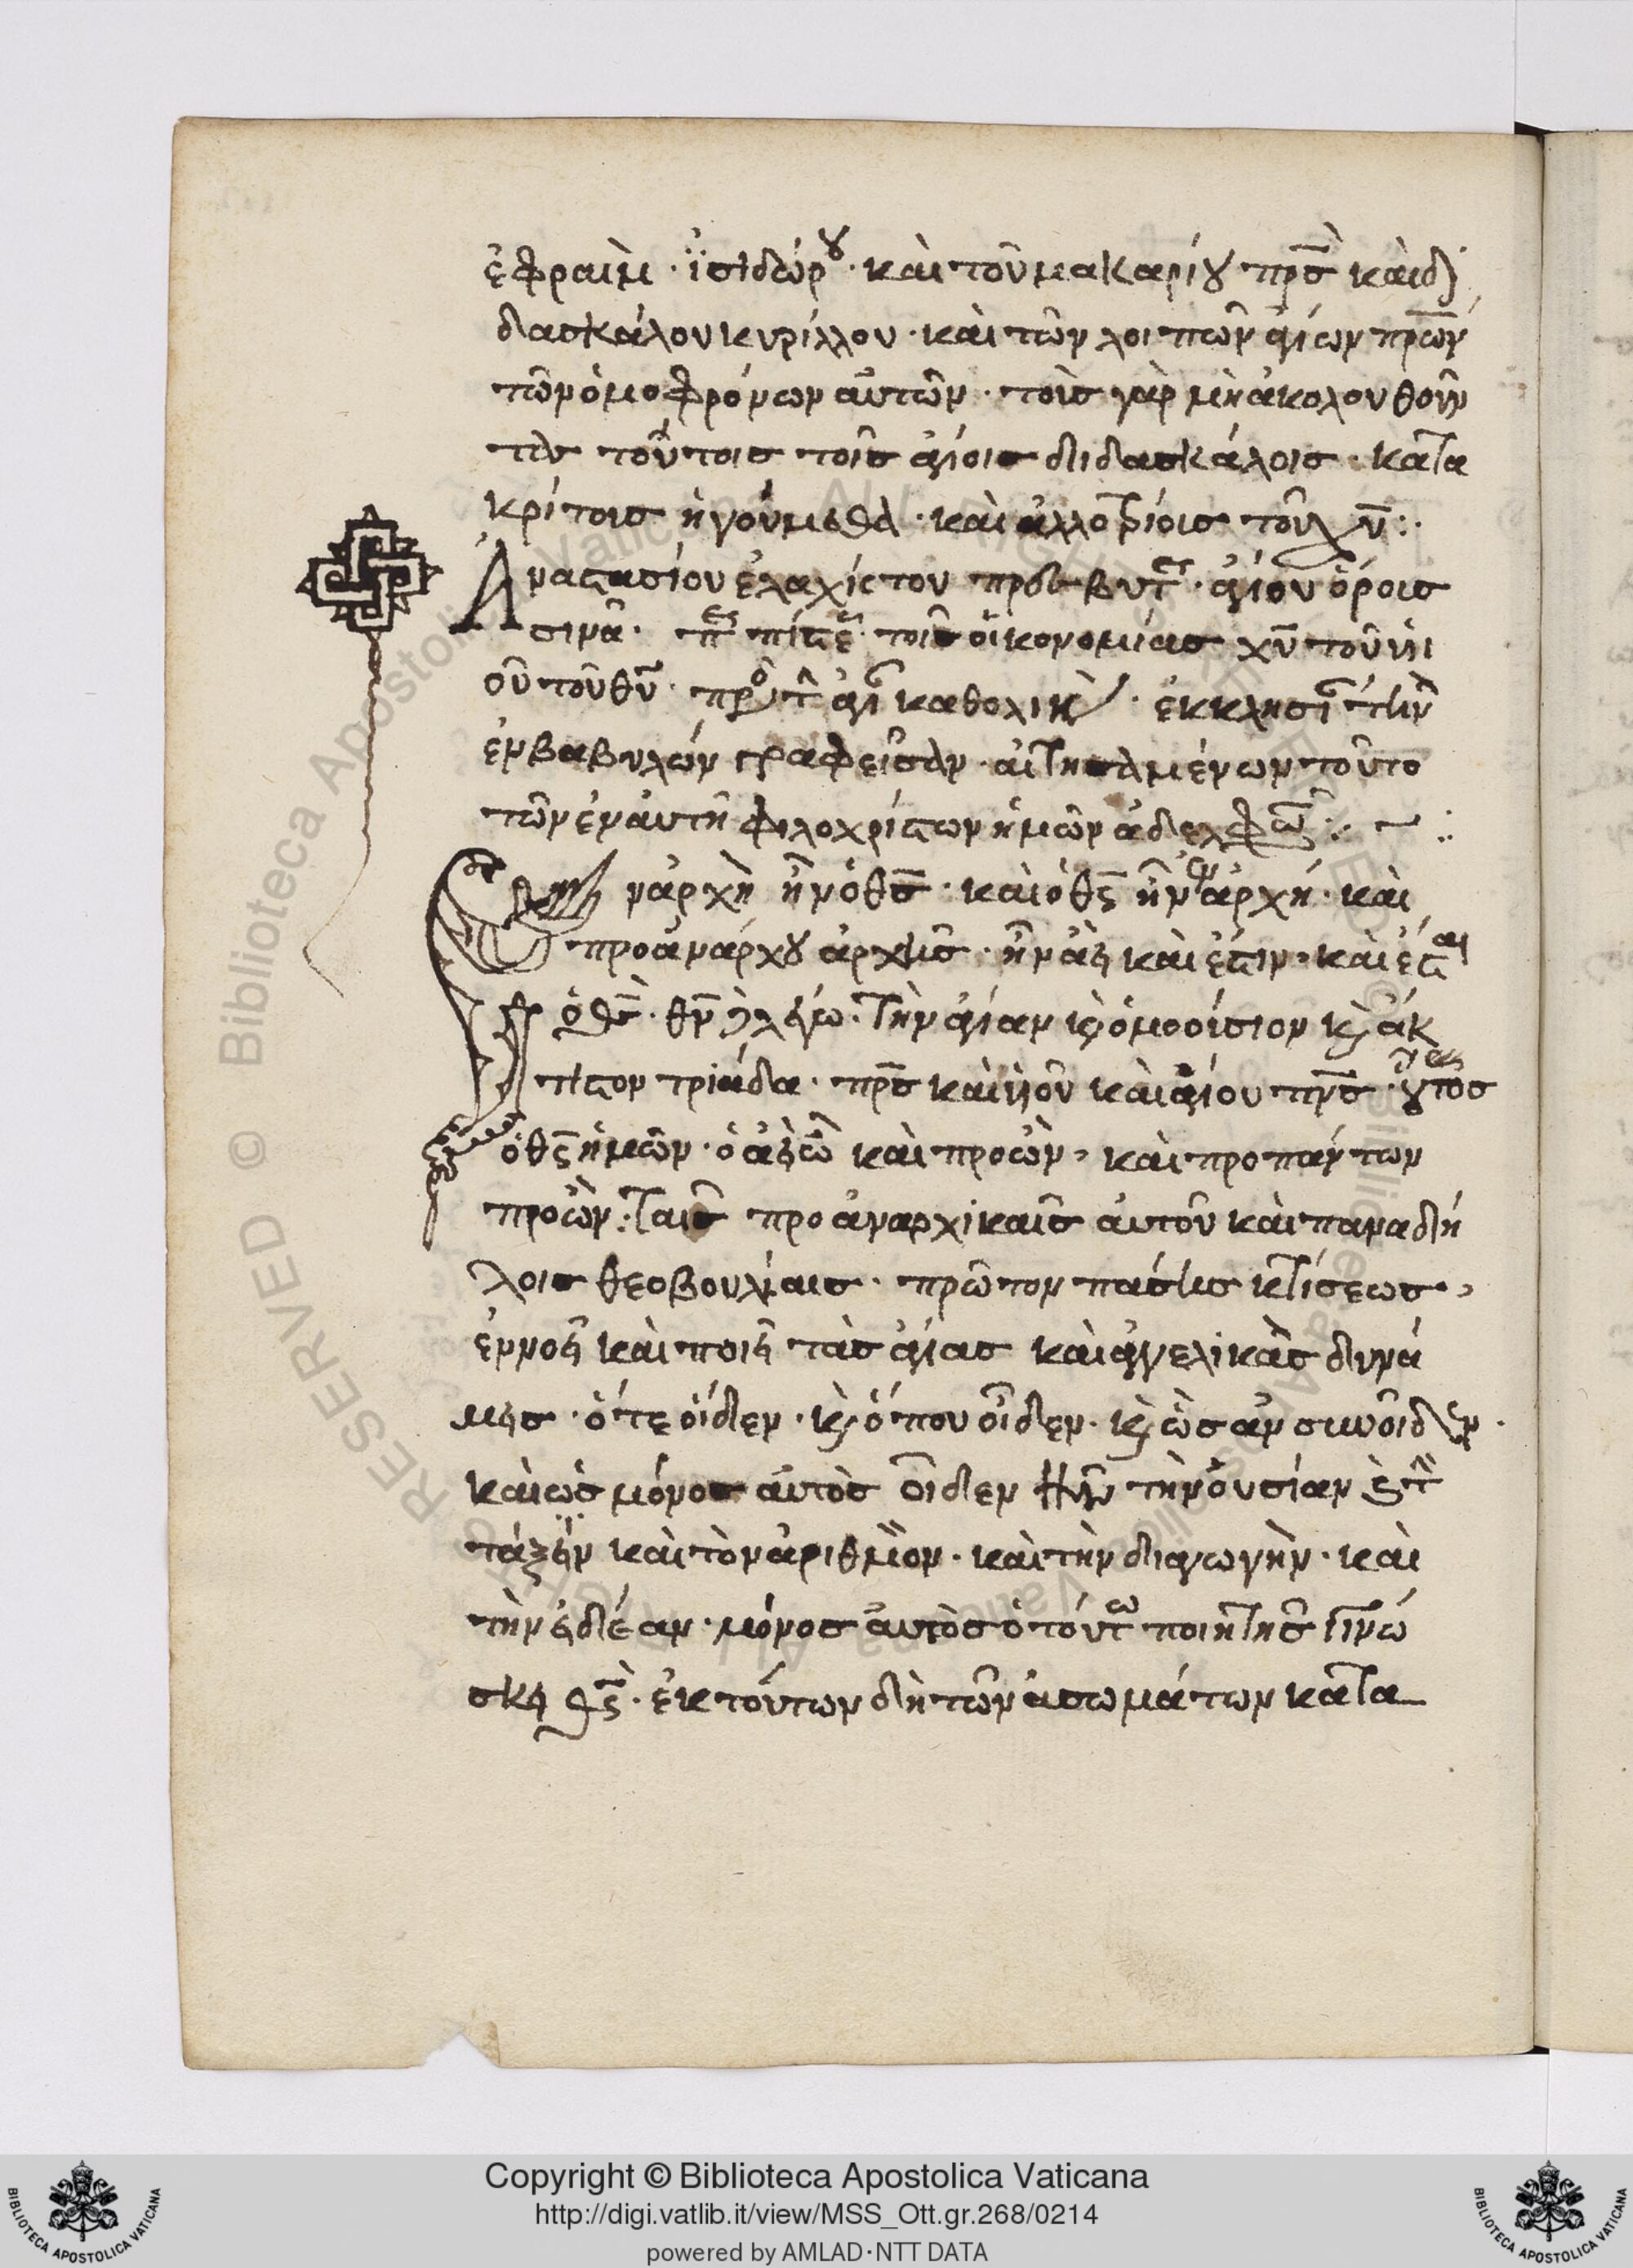 ἐφραιμ· ϊσιδώρου· καὶ τοῦ μακαρίου πρς καὶ δι
δασκάλου κυρίλλου· καὶ τῶν λοιπῶν ἁγίων πρων
τῶν ὁμοφρόνων αὐτῶν· τοὺς γὰρ μὴ ἀκολουθοῦν
τας τούτοις τοῖς ἁγίοις διδασκάλοις· κατα
κρίτους ἡγούμεθα· καὶ ἀλλοτρίους τοῦ χυ:·
Ἀναστασίου ἐλαχίστου πρεσβυτ· ἁγίου ὄρους
σινᾶ· πίστε τῆς οἰκονομίας χυ τοῦ υἱ
οῦ τοῦ θυ· πρὸ τ ἁγι καθολικὴ· ἐκκλησι τὴν
ἐν βαβυλών γραφεῖσαν· αἰτησαμένων τοῦτο
τῶν ἐν αὐτῆ φιλοχρίστων ἡμῶν ἀδελφῶ:·
Ἐν ἀρχῆ ἦν ὁ θς· καὶ ὁ θς ἦν ἐν ἀρχή· καὶ
προ ἀνάρχου ἀρχῆς· ἦν ἀεὶ καὶ ἔστιν· καὶ ἔσται
ὁ θς· θν δὲ λέγω· τὴν ἁγίαν κ ὁμοούσιον κ ἄκ
τιστον τριάδα· πρς καὶ υἱοῦ καὶ ἁγίου πνς· οὗτος
ὁ θς ἡμῶν· ὁ ἀεὶ ὢ καὶ προὼν· καὶ πρὸ πάντων
προὼν· ταῖς προαναρχικαῖς αὐτοῦ καὶ παναδή
λοις θεοβουλίαις· πρῶτον πάσης κτίσεως·
ἐννοεῖ καὶ ποιεῖ τὰς ἁγίας καὶ ἀγγελικὰς δυνά
μεις· ὅτε οἶδεν· κ ὅπου οἶδεν· κ ὡς ἂν συνοῖδεν·
καὶ ὡς μόνος αὐτὸς οἶδεν τὴν οὐσίαν κ τ
τάξειν καὶ τὸν ἀριθμὸν· καὶ τὴν διαγωγὴν· καὶ
τὴν εἰδέαν· μόνος αὐτὸς ὁ τούτω ποιητης γινώ
σκει θς· ἐκ τούτων δὴ τῶν ἀσωμάτων κατα
Copyright © Biblioteca Apostolica Vaticana
http://digi.vatlib.it/view/MSS_Ott.gr.268/0214
powered by AMLAD·NTT DATA